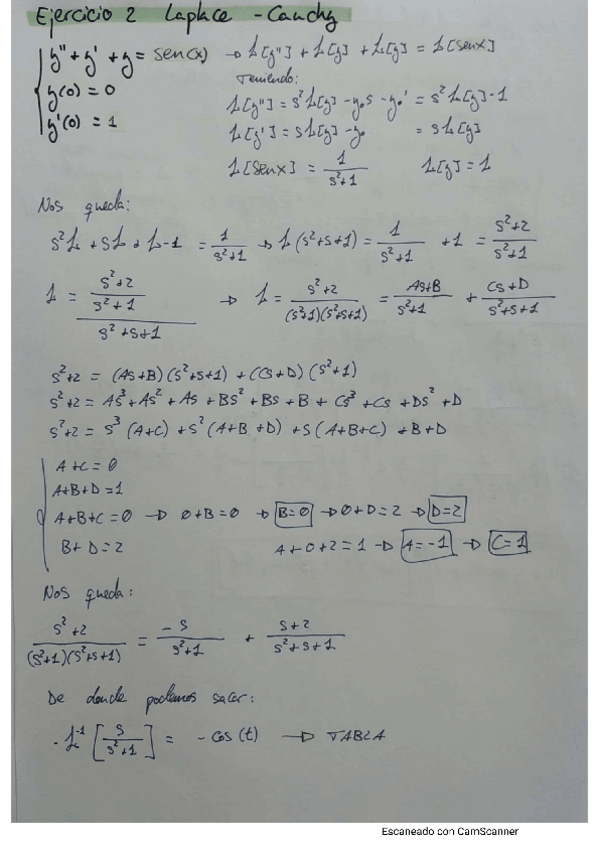 Ejercicio 2 Laplace - Cauchy
y'' + y' + y = sen(x) → L[y''] + L[y] + L[y] = L[senx]
y(0) = 0
y'(0) = 1
Teniendo:
L[y''] = s²L[y] - y₀s - y₀' = s²L[y] - 1
L[y'] = sL[y] - y₀ = sL[y]
L[senx] = 1/(s²+1) L[y] = L
Nos queda:
s²L + sL + L - 1 = 1/(s²+1) → L(s²+s+1) = 1/(s²+1) + 1 = (s²+2)/(s²+1)
L = ((s²+2)/(s²+1))/(s²+s+1) → L = (s²+2)/((s²+1)(s²+s+1)) = (As+B)/(s²+1) + (Cs+D)/(s²+s+1)
s²+2 = (As+B)(s²+s+1) + (Cs+D)(s²+1)
s²+2 = As³ + As² + As + Bs² + Bs + B + Cs³ + Cs + Ds² + D
s²+2 = s³(A+C) + s²(A+B+D) + s(A+B+C) + B+D
A+C = 0
A+B+D = 1
A+B+C = 0 → 0+B = 0 → B=0 → 0+D = 2 → D=2
B+D = 2 A+0+2 = 1 → A=-1 → C=1
Nos queda:
(s²+2)/((s²+1)(s²+s+1)) = -s/(s²+1) + (s+2)/(s²+s+1)
De donde podemos sacar:
· L⁻¹[s/(s²+1)] = -cos(t) → TABLA
Escaneado con CamScanner